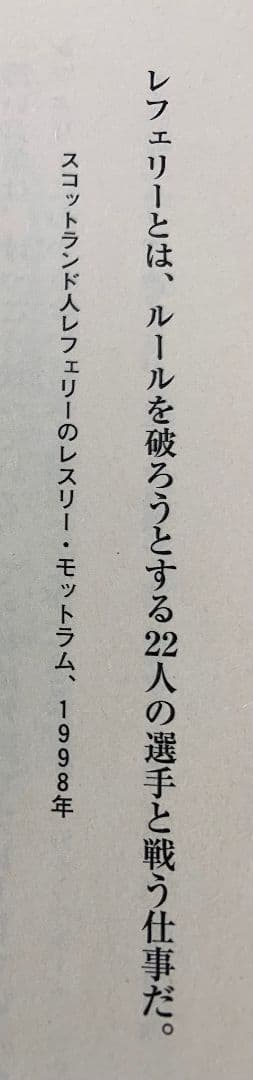 レフェリーとは、ルールを破ろうとする22人の選手と戦う仕事だ。
スコットランド人レフェリーのレスリー・モットラム、1998年